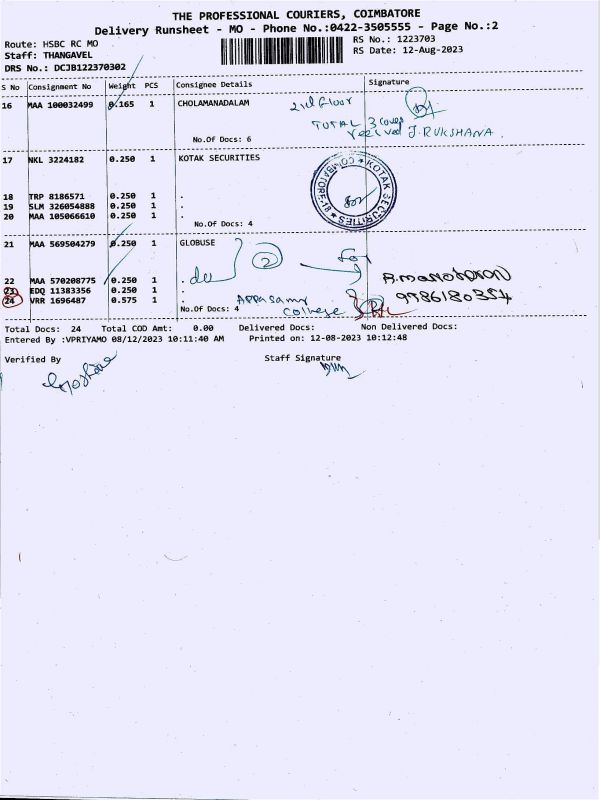 THE PROFESSIONAL COURIERS, COIMBATORE
Delivery Runsheet - MO - Phone No.:0422-3505555 - Page No.:2
Route: HSBC RC MO
RS No.: 1223703
Staff: THANGAVEL
RS Date: 12-Aug-2023
DRS No.: DCJB122370302
S No Consignment No Weight PCS Consignee Details Signature
16 MAA 100032499 0.165 1 CHOLAMANADALAM 2nd floor
TOTAL 3 cover
received J.RUKSHANA.
No.Of Docs: 6
17 NKL 3224182 0.250 1 KOTAK SECURITIES
KOTAK SECURITIES COIMBATORE
18 TRP 8186571 0.250 1 .
19 SLM 326054888 0.250 1 .
20 MAA 105066610 0.250 1 .
No.Of Docs: 4
21 MAA 569504279 0.250 1 GLOBUSE
2 For
22 MAA 570208775 0.250 1 . do
R.manoharan
23 EDQ 11383356 0.250 1 .
24 VRR 1696487 0.575 1 . Appasamy
College
No.Of Docs: 4
Total Docs: 24 Total COD Amt: 0.00 Delivered Docs: Non Delivered Docs:
Entered By :VPRIYAMO 08/12/2023 10:11:40 AM Printed on: 12-08-2023 10:12:48
Verified By Staff Signature